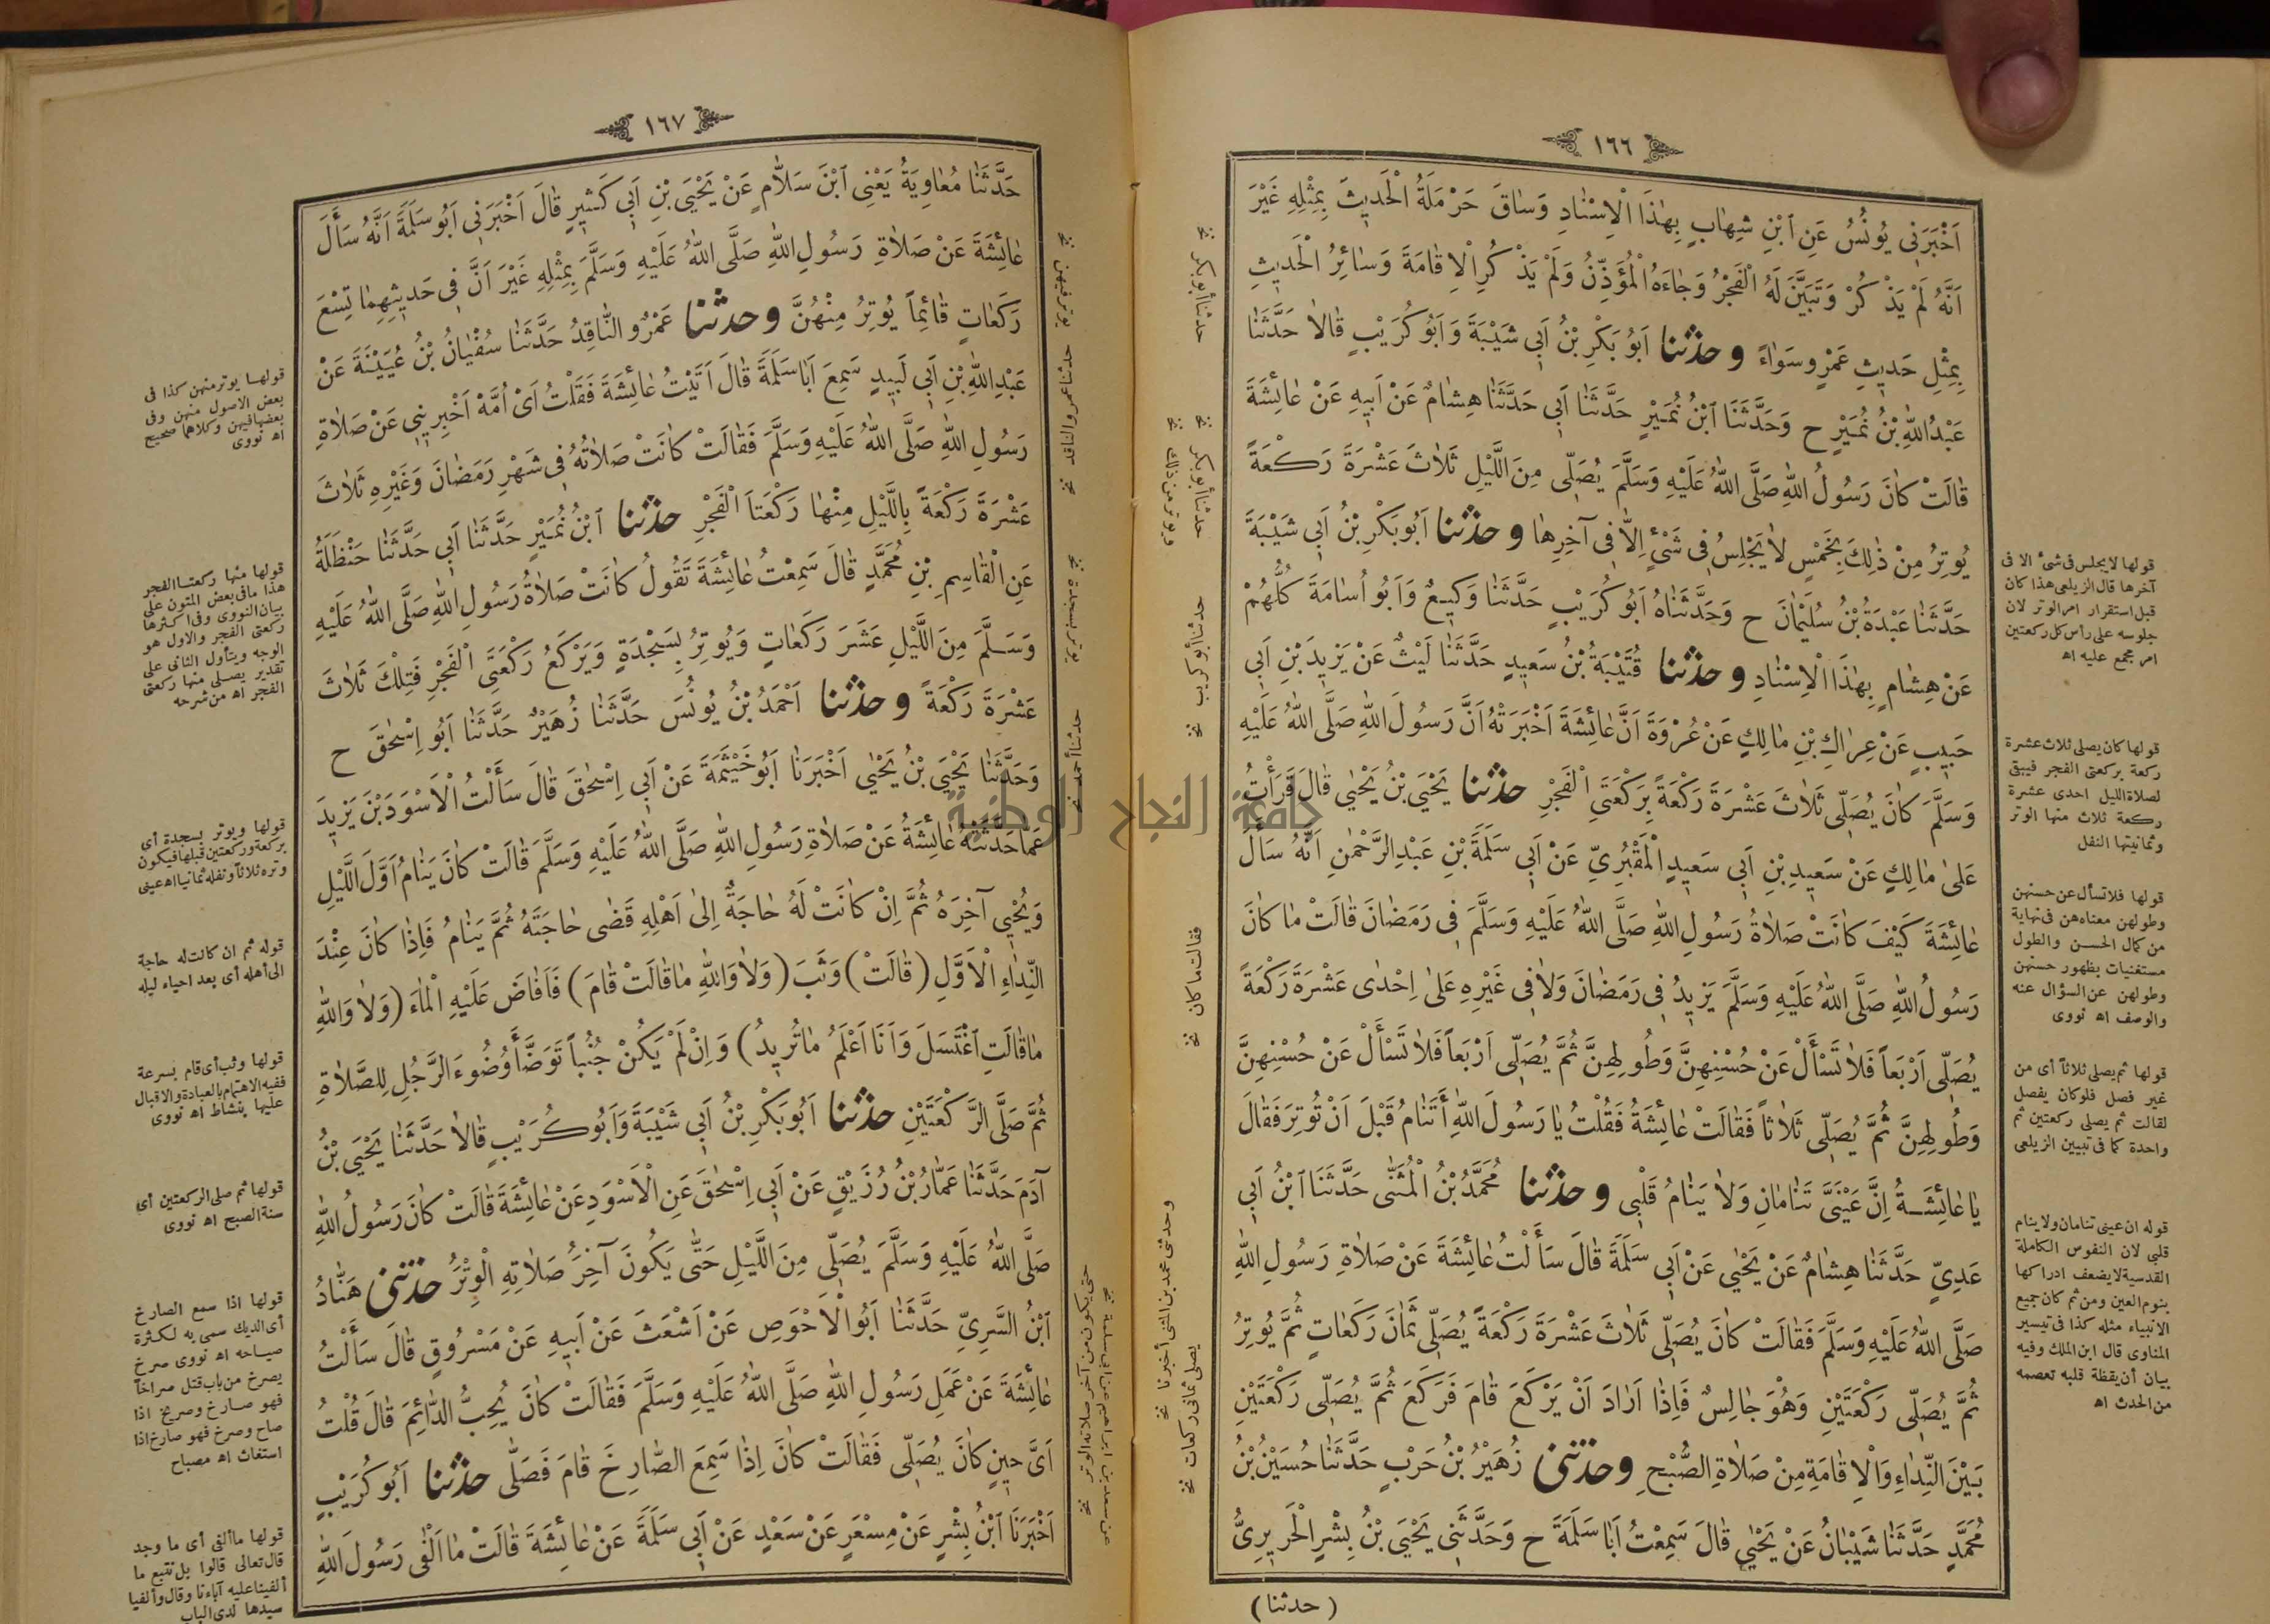 ١٦٦
اَخْبَرَنِى يُونُسُ عَنِ ابْنِ شِهَابٍ بِهٰذَا الْاِسْنَادِ وَسَاقَ حَرْمَلَةُ الْحَدِيثَ بِمِثْلِهِ غَيْرَ
اَنَّهُ لَمْ يَذْكُرْ وَتَبَيَّنَ لَهُ الْفَجْرُ وَجَاءَهُ الْمُؤَذِّنُ وَلَمْ يَذْكُرِ الْاِقَامَةَ وَسَائِرُ الْحَدِيثِ
بِمِثْلِ حَدِيثِ عَمْرٍو سَوَاءً وحدثنا اَبُو بَكْرِ بْنُ اَبِى شَيْبَةَ وَاَبُو كُرَيْبٍ قَالَا حَدَّثَنَا
عَبْدُاللّٰهِ بْنُ نُمَيْرٍ ح وَحَدَّثَنَا ابْنُ نُمَيْرٍ حَدَّثَنَا اَبِى حَدَّثَنَا هِشَامٌ عَنْ اَبِيهِ عَنْ عَائِشَةَ
قَالَتْ كَانَ رَسُولُ اللّٰهِ صَلَّى اللّٰهُ عَلَيْهِ وَسَلَّمَ يُصَلِّى مِنَ اللَّيْلِ ثَلَاثَ عَشْرَةَ رَكْعَةً
يُوتِرُ مِنْ ذٰلِكَ بِخَمْسٍ لَا يَجْلِسُ فِى شَىْءٍ اِلَّا فِى آخِرِهَا وحدثنا اَبُو بَكْرِ بْنُ اَبِى شَيْبَةَ
حَدَّثَنَا عَبْدَةُ بْنُ سُلَيْمَانَ ح وَحَدَّثَنَاهُ اَبُو كُرَيْبٍ حَدَّثَنَا وَكِيعٌ وَاَبُو اُسَامَةَ كُلُّهُمْ
عَنْ هِشَامٍ بِهٰذَا الْاِسْنَادِ وحدثنا قُتَيْبَةُ بْنُ سَعِيدٍ حَدَّثَنَا لَيْثٌ عَنْ يَزِيدَ بْنِ اَبِى
حَبِيبٍ عَنْ عِرَاكِ بْنِ مَالِكٍ عَنْ عُرْوَةَ اَنَّ عَائِشَةَ اَخْبَرَتْهُ اَنَّ رَسُولَ اللّٰهِ صَلَّى اللّٰهُ عَلَيْهِ
وَسَلَّمَ كَانَ يُصَلِّى ثَلَاثَ عَشْرَةَ رَكْعَةً بِرَكْعَتَىِ الْفَجْرِ حدثنا يَحْيَى بْنُ يَحْيٰى قَالَ قَرَأْتُ
عَلىٰ مَالِكٍ عَنْ سَعِيدِ بْنِ اَبِى سَعِيدٍ الْمَقْبُرِىِّ عَنْ اَبِى سَلَمَةَ بْنِ عَبْدِ الرَّحْمٰنِ اَنَّهُ سَأَلَ
عَائِشَةَ كَيْفَ كَانَتْ صَلَاةُ رَسُولِ اللّٰهِ صَلَّى اللّٰهُ عَلَيْهِ وَسَلَّمَ فِى رَمَضَانَ قَالَتْ مَا كَانَ
رَسُولُ اللّٰهِ صَلَّى اللّٰهُ عَلَيْهِ وَسَلَّمَ يَزِيدُ فِى رَمَضَانَ وَلَا فِى غَيْرِهِ عَلىٰ اِحْدٰى عَشْرَةَ رَكْعَةً
يُصَلِّى اَرْبَعاً فَلَا تَسْأَلْ عَنْ حُسْنِهِنَّ وَطُولِهِنَّ ثُمَّ يُصَلِّى اَرْبَعاً فَلَا تَسْأَلْ عَنْ حُسْنِهِنَّ
وَطُولِهِنَّ ثُمَّ يُصَلِّى ثَلَاثاً فَقَالَتْ عَائِشَةُ فَقُلْتُ يَا رَسُولَ اللّٰهِ أَتَنَامُ قَبْلَ اَنْ تُوتِرَ فَقَالَ
يَا عَائِشَةُ اِنَّ عَيْنَىَّ تَنَامَانِ وَلَا يَنَامُ قَلْبِى وحدثنا مُحَمَّدُ بْنُ الْمُثَنّٰى حَدَّثَنَا ابْنُ اَبِى
عَدِىٍّ حَدَّثَنَا هِشَامٌ عَنْ يَحْيٰى عَنْ اَبِى سَلَمَةَ قَالَ سَأَلْتُ عَائِشَةَ عَنْ صَلَاةِ رَسُولِ اللّٰهِ
صَلَّى اللّٰهُ عَلَيْهِ وَسَلَّمَ فَقَالَتْ كَانَ يُصَلِّى ثَلَاثَ عَشْرَةَ رَكْعَةً يُصَلِّى ثَمَانَ رَكَعَاتٍ ثُمَّ يُوتِرُ
ثُمَّ يُصَلِّى رَكْعَتَيْنِ وَهُوَ جَالِسٌ فَاِذَا اَرَادَ اَنْ يَرْكَعَ قَامَ فَرَكَعَ ثُمَّ يُصَلِّى رَكْعَتَيْنِ
بَيْنَ النِّدَاءِ وَالْاِقَامَةِ مِنْ صَلَاةِ الصُّبْحِ وحدثنى زُهَيْرُ بْنُ حَرْبٍ حَدَّثَنَا حُسَيْنُ بْنُ
مُحَمَّدٍ حَدَّثَنَا شَيْبَانُ عَنْ يَحْيٰى قَالَ سَمِعْتُ اَبَا سَلَمَةَ ح وَحَدَّثَنِى يَحْيَى بْنُ بِشْرٍ الْحَرِيرِىُّ
(حدثنا)
قولها لايجلس فى شئ الا فى
آخرها قال الزيلعى هذا كان
قبل استقرار امر الوتر لان
جلوسه على رأس كل ركعتين
امر مجمع عليه اه
قولها كان يصلى ثلاث عشرة
ركعة بركعتى الفجر فيبقى
لصلاة الليل احدى عشرة
ركعة ثلاث منها الوتر
وثمانيتها النفل
قولها فلا تسأل عن حسنهن
وطولهن معناه هن فى نهاية
من كمال الحسن والطول
مستغنيات بظهور حسنهن
وطولهن عن السؤال عنه
والوصف اه نووى
قولها ثم يصلى ثلاثاً أى من
غير فصل فلو كان يفصل
لقالت ثم يصلى ركعتين ثم
واحدة كما فى تبيين الزيلعى
قوله ان عينى تنامان ولا ينام
قلبى لان النفوس الكاملة
القدسية لا يضعف ادراكها
بنوم العين ومن ثم كان جميع
الانبياء مثله كذا فى تيسير
المناوى قال ابن الملك وفيه
بيان أن يقظة قلبه تعصمه
من الحدث اه
حدثنا أبو بكر نخ
حدثنا أبو بكر نخ
ويوتر من ذلك نخ
حدثنا أبو كريب نخ
فقالت ما كان نخ
وحدثنى محمد بن المثنى أخبرنا نخ
يصلى ثمانى ركعات نخ
١٦٧
حَدَّثَنَا مُعَاوِيَةُ يَعْنِى ابْنَ سَلَّامٍ عَنْ يَحْيَى بْنِ اَبِى كَثِيرٍ قَالَ اَخْبَرَنِى اَبُو سَلَمَةَ اَنَّهُ سَأَلَ
عَائِشَةَ عَنْ صَلَاةِ رَسُولِ اللّٰهِ صَلَّى اللّٰهُ عَلَيْهِ وَسَلَّمَ بِمِثْلِهِ غَيْرَ اَنَّ فِى حَدِيثِهِمَا تِسْعَ
رَكَعَاتٍ قَائِماً يُوتِرُ مِنْهُنَّ وحدثنا عَمْرٌو النَّاقِدُ حَدَّثَنَا سُفْيَانُ بْنُ عُيَيْنَةَ عَنْ
عَبْدِاللّٰهِ بْنِ اَبِى لَبِيدٍ سَمِعَ اَبَا سَلَمَةَ قَالَ اَتَيْتُ عَائِشَةَ فَقُلْتُ اَىْ اُمَّهْ اَخْبِرِينِى عَنْ صَلَاةِ
رَسُولِ اللّٰهِ صَلَّى اللّٰهُ عَلَيْهِ وَسَلَّمَ فَقَالَتْ كَانَتْ صَلَاتُهُ فِى شَهْرِ رَمَضَانَ وَغَيْرِهِ ثَلَاثَ
عَشْرَةَ رَكْعَةً بِاللَّيْلِ مِنْهَا رَكْعَتَا الْفَجْرِ حدثنا ابْنُ نُمَيْرٍ حَدَّثَنَا اَبِى حَدَّثَنَا حَنْظَلَةُ
عَنِ الْقَاسِمِ بْنِ مُحَمَّدٍ قَالَ سَمِعْتُ عَائِشَةَ تَقُولُ كَانَتْ صَلَاةُ رَسُولِ اللّٰهِ صَلَّى اللّٰهُ عَلَيْهِ
وَسَلَّمَ مِنَ اللَّيْلِ عَشَرَ رَكَعَاتٍ وَيُوتِرُ بِسَجْدَةٍ وَيَرْكَعُ رَكْعَتَىِ الْفَجْرِ فَتِلْكَ ثَلَاثَ
عَشْرَةَ رَكْعَةً وحدثنا اَحْمَدُ بْنُ يُونُسَ حَدَّثَنَا زُهَيْرٌ حَدَّثَنَا اَبُو اِسْحٰقَ ح
وَحَدَّثَنَا يَحْيَى بْنُ يَحْيٰى اَخْبَرَنَا اَبُو خَيْثَمَةَ عَنْ اَبِى اِسْحٰقَ قَالَ سَأَلْتُ الْاَسْوَدَ بْنَ يَزِيدَ
عَمَّا حَدَّثَتْهُ عَائِشَةُ عَنْ صَلَاةِ رَسُولِ اللّٰهِ صَلَّى اللّٰهُ عَلَيْهِ وَسَلَّمَ قَالَتْ كَانَ يَنَامُ اَوَّلَ اللَّيْلِ
وَيُحْيِى آخِرَهُ ثُمَّ اِنْ كَانَتْ لَهُ حَاجَةٌ اِلىٰ اَهْلِهِ قَضٰى حَاجَتَهُ ثُمَّ يَنَامُ فَاِذَا كَانَ عِنْدَ
النِّدَاءِ الْاَوَّلِ (قَالَتْ) وَثَبَ (وَلَا وَاللّٰهِ مَا قَالَتْ قَامَ) فَاَفَاضَ عَلَيْهِ الْمَاءَ (وَلَا وَاللّٰهِ
مَا قَالَتِ اغْتَسَلَ وَاَنَا اَعْلَمُ مَا تُرِيدُ) وَاِنْ لَمْ يَكُنْ جُنُباً تَوَضَّأَ وُضُوءَ الرَّجُلِ لِلصَّلَاةِ
ثُمَّ صَلَّى الرَّكْعَتَيْنِ حدثنا اَبُو بَكْرِ بْنُ اَبِى شَيْبَةَ وَاَبُو كُرَيْبٍ قَالَا حَدَّثَنَا يَحْيَى بْنُ
آدَمَ حَدَّثَنَا عَمَّارُ بْنُ رُزَيْقٍ عَنْ اَبِى اِسْحٰقَ عَنِ الْاَسْوَدِ عَنْ عَائِشَةَ قَالَتْ كَانَ رَسُولُ اللّٰهِ
صَلَّى اللّٰهُ عَلَيْهِ وَسَلَّمَ يُصَلِّى مِنَ اللَّيْلِ حَتّٰى يَكُونَ آخِرُ صَلَاتِهِ الْوِتْرُ حدثنى هَنَّادُ
ابْنُ السَّرِىِّ حَدَّثَنَا اَبُو الْاَحْوَصِ عَنْ اَشْعَثَ عَنْ اَبِيهِ عَنْ مَسْرُوقٍ قَالَ سَأَلْتُ
عَائِشَةَ عَنْ عَمَلِ رَسُولِ اللّٰهِ صَلَّى اللّٰهُ عَلَيْهِ وَسَلَّمَ فَقَالَتْ كَانَ يُحِبُّ الدَّائِمَ قَالَ قُلْتُ
اَىَّ حِينٍ كَانَ يُصَلِّى فَقَالَتْ كَانَ اِذَا سَمِعَ الصَّارِخَ قَامَ فَصَلّٰى حدثنا اَبُو كُرَيْبٍ
اَخْبَرَنَا ابْنُ بِشْرٍ عَنْ مِسْعَرٍ عَنْ سَعْدٍ عَنْ اَبِى سَلَمَةَ عَنْ عَائِشَةَ قَالَتْ مَا اَلْفٰى رَسُولَ اللّٰهِ
يوتر فيهن نخ
حدثنا عمرو الناقد نخ
يوتر بسجدة نخ
حدثنا أحمد نخ
حتى يكون من آخر صلاته الوتر نخ
قولها يوتر منهن كذا فى
بعض الاصول منهن وفى
بعضها فيهن وكلاهما صحيح
اه نووى
قولها منها ركعتا الفجر
هذا ما فى بعض المتون على
بيان النووى وفى اكثرها
ركعتى الفجر والاول هو
الوجه ويتأول الثانى على
تقدير يصلى منها ركعتى
الفجر اه من شرحه
قولها ويوتر بسجدة أى
بركعة وركعتين قبلها فيكون
وتره ثلاثاً ونفله ثمانيا اه عينى
قوله ثم ان كانت له حاجة
الى أهله أى بعد احياء ليله
قولها وثب أى قام بسرعة
ففيه الاهتمام بالعبادة والاقبال
عليها بنشاط اه نووى
قولها ثم صلى الركعتين أى
سنة الصبح اه نووى
قولها اذا سمع الصارخ
أى الديك سمى به لكثرة
صياحه اه نووى صرخ
يصرخ من باب قتل صراخاً
فهو صارخ وصريخ اذا
صاح وصرخ فهو صارخ اذا
استغاث اه مصباح
قولها ما ألفى أى ما وجد
قال تعالى قالوا بل نتبع ما
ألفينا عليه آباءنا وقال وألفيا
سيدها لدى الباب
جامعة النجاح الوطنية